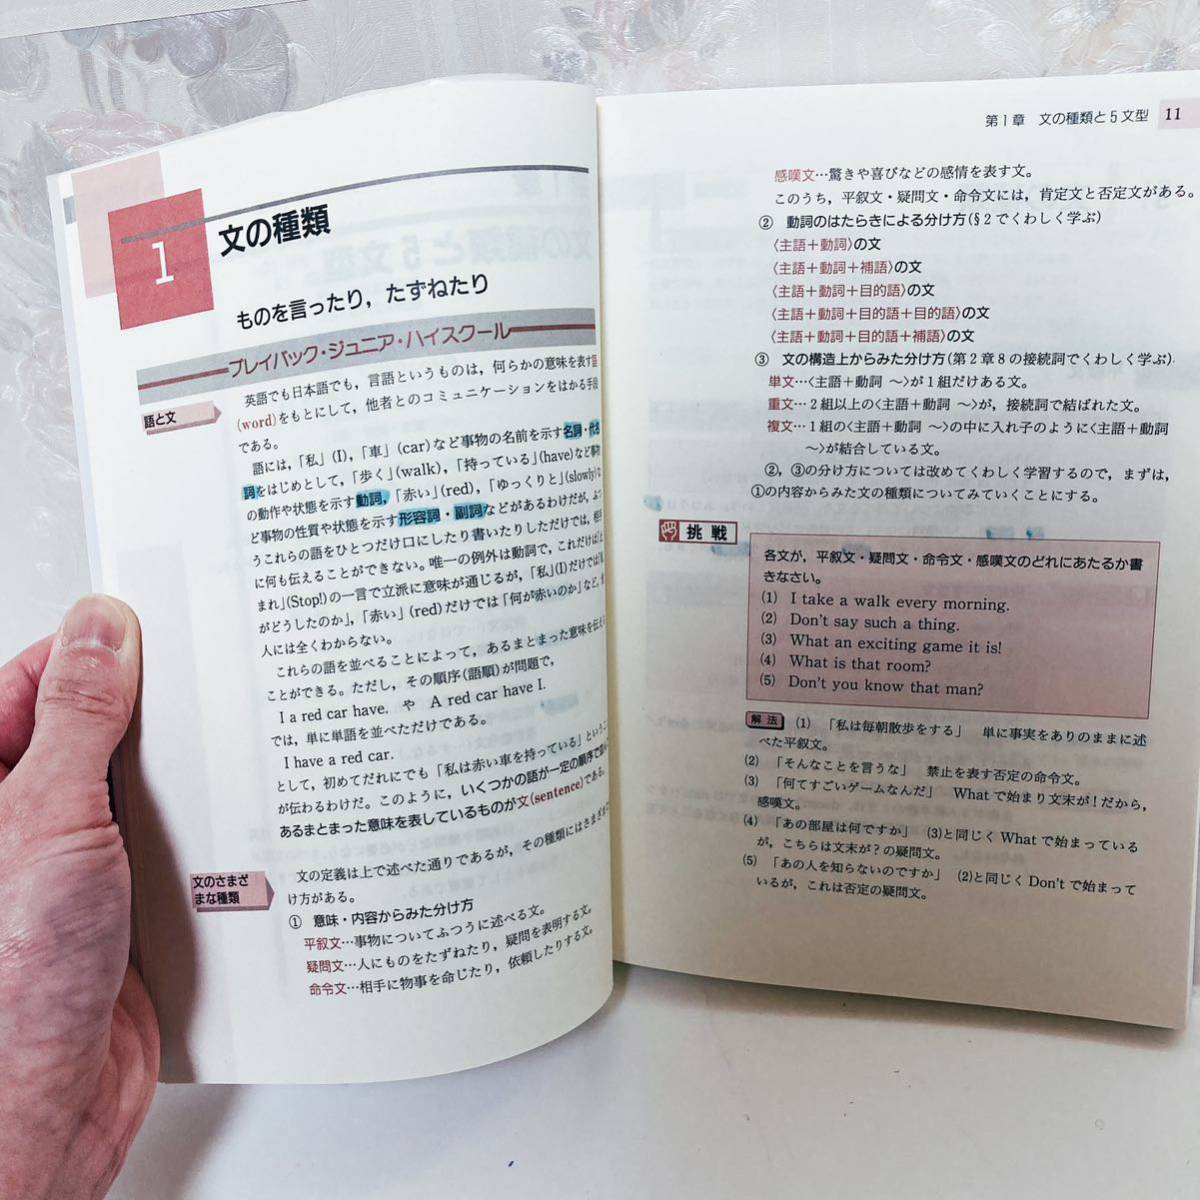 1
文の種類
ものを言ったり，たずねたり
プレイバック・ジュニア・ハイスクール
語と文
英語でも日本語でも，言語というものは，何らかの意味を表す語
(word)をもとにして，他者とのコミュニケーションをはかる手段
である。
語には，「私」(I)，「車」(car)など事物の名前を示す名詞・代名
詞をはじめとして，「歩く」(walk)，「持っている」(have)など事物
の動作や状態を示す動詞，「赤い」(red)，「ゆっくりと」(slowly)な
ど事物の性質や状態を示す形容詞・副詞などがあるわけだが，ふつ
うこれらの語をひとつだけ口にしたり書いたりしただけでは，相手
に何も伝えることができない。唯一の例外は動詞で，これだけは「止
まれ」(Stop!)の一言で立派に意味が通じるが，「私」(I)だけでは「私
がどうしたのか」，「赤い」(red)だけでは「何が赤いのか」など，
人には全くわからない。
これらの語を並べることによって，あるまとまった意味を伝える
ことができる。ただし，その順序(語順)が問題で，
I a red car have. や A red car have I.
では，単に単語を並べただけである。
I have a red car.
として，初めてだれにでも「私は赤い車を持っている」という
が伝わるわけだ。このように，いくつかの語が一定の順序で
あるまとまった意味を表しているものが文(sentence)である。
文のさまざ
まな種類
文の定義は上で述べた通りであるが，その種類にはさまざまな
け方がある。
① 意味・内容からみた分け方
平叙文…事物についてふつうに述べる文。
疑問文…人にものをたずねたり，疑問を表明する文。
命令文…相手に物事を命じたり，依頼したりする文。
第1章 文の種類と5文型 11
感嘆文…驚きや喜びなどの感情を表す文。
このうち，平叙文・疑問文・命令文には，肯定文と否定文がある。
② 動詞のはたらきによる分け方(§2でくわしく学ぶ)
〈主語＋動詞〉の文
〈主語＋動詞＋補語〉の文
〈主語＋動詞＋目的語〉の文
〈主語＋動詞＋目的語＋目的語〉の文
〈主語＋動詞＋目的語＋補語〉の文
③ 文の構造上からみた分け方(第2章8の接続詞でくわしく学ぶ)
単文…〈主語＋動詞 〜〉が1組だけある文。
重文…2組以上の〈主語＋動詞 〜〉が，接続詞で結ばれた文。
複文…1組の〈主語＋動詞 〜〉の中に入れ子のように〈主語＋動詞
〜〉が結合している文。
②，③の分け方については改めてくわしく学習するので，まずは，
①の内容からみた文の種類についてみていくことにする。
挑戦
各文が，平叙文・疑問文・命令文・感嘆文のどれにあたるか書
きなさい。
(1) I take a walk every morning.
(2) Don't say such a thing.
(3) What an exciting game it is!
(4) What is that room?
(5) Don't you know that man?
解法 (1) 「私は毎朝散歩をする」 単に事実をありのままに述
べた平叙文。
(2) 「そんなことを言うな」 禁止を表す否定の命令文。
(3) 「何てすごいゲームなんだ」 Whatで始まり文末が！だから，
感嘆文。
(4) 「あの部屋は何ですか」 (3)と同じくWhatで始まっている
が，こちらは文末が？の疑問文。
(5) 「あの人を知らないのですか」 (2)と同じくDon'tで始まって
いるが，これは否定の疑問文。